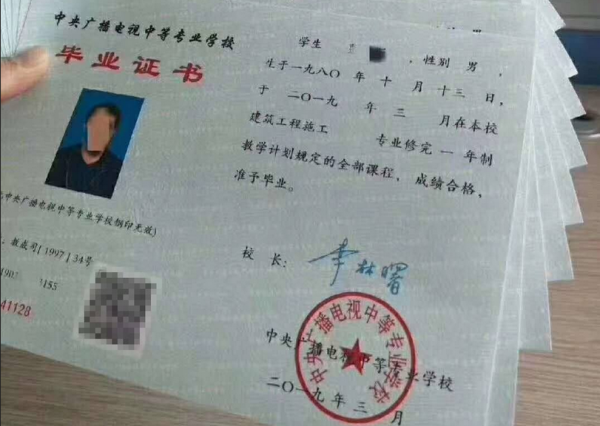 中央广播电视中等专业学校
毕业证书
中央广播电视中等专业学校钢印无效)
教成司[1997]34号
3155
41128
学生 , 性别 男,
生于一九八〇年 十 月 十三 日,
于 二〇一九 年 三 月在本校
建筑工程施工 专业修完 一 年制
教学计划规定的全部课程, 成绩合格,
准予毕业。
校 长: 李林曙
中央广播电视中等专业学校
中央广播电视中等专业学校
二〇一九 年 三 月